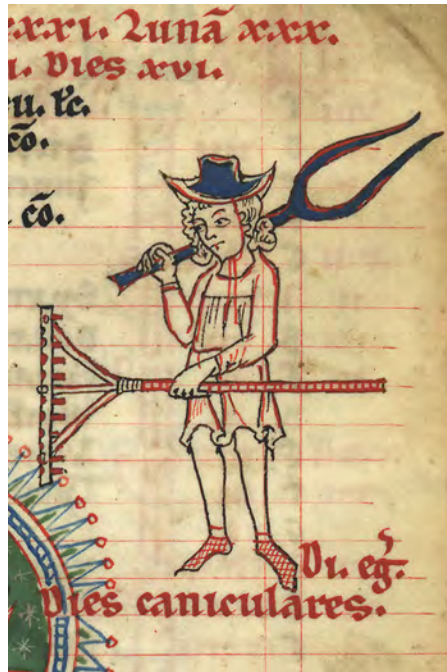 xxxi. Lunā xxx.
i. Dies xvi.
co̅.
co̅.
Di. eg̾.
Dies caniculares.